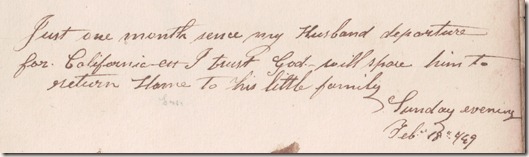 Just one month sence my Husband departure
for California— I trust God—will spare him to
return Home to his little family
Sunday evening
Feb. 18th /49